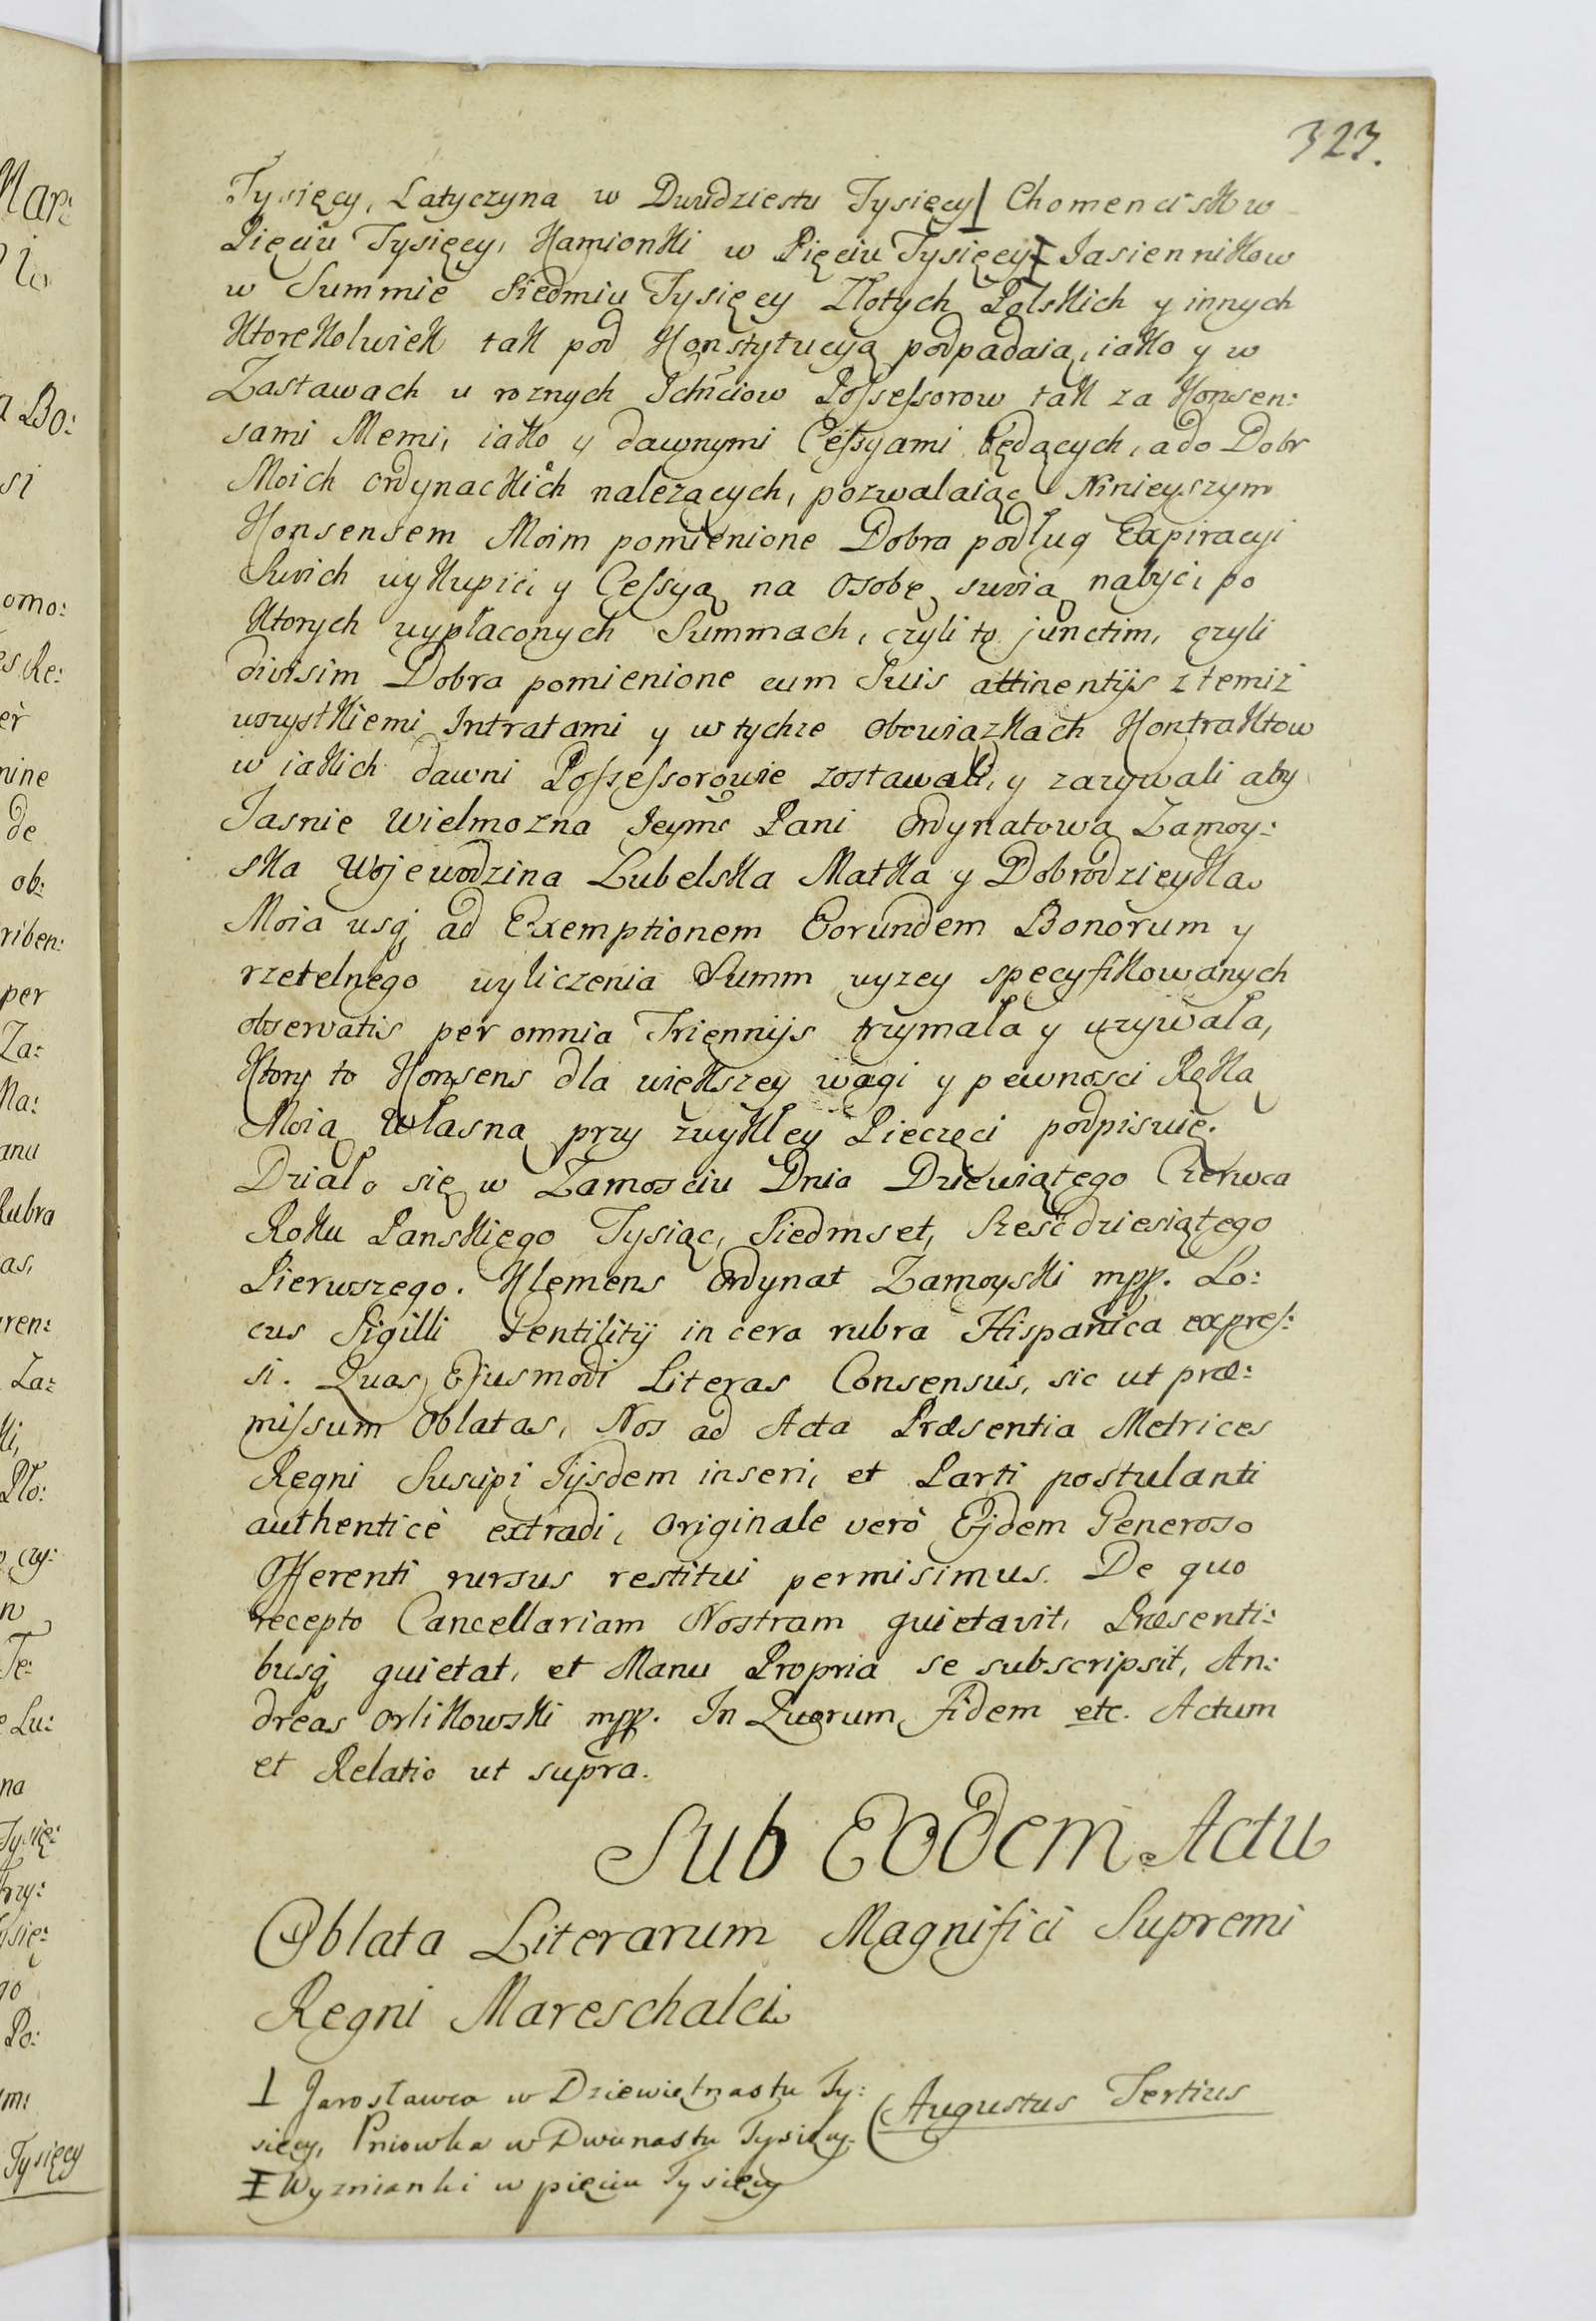 323.
Tysięcy, Latyczyna w Dwudziestu Tysięcy⊥ Chomencisk w
Pięciu Tysięcy, Kamionki w Pięciu Tysięcy Ɪ Jasiennikow
w Summie Siedmiu Tysięcy Złotych Polskich y innych
ktorekolwiek tak pod Konstytucyą podpadaią, iako y w
Zastawach u roznych Ichmciow Possessorow tak za Konsen:
sami Memi, iako y dawnymi Cessyami będących, a do Dobr
Moich Ordynackich nalezących, pozwalaiąc Ninieyszym
Konsensem Moim pomienione Dobra podług Expiracyi
Swoich wykupić, y Cessyą na Osobę swoią nabyć, po
ktorych wypłaconych Summach, czyli to junctim, czyli
divisim Dobra pomienione cum Suis attinentijs z temiż
wszystkiemi Intratami y w tychze obowiązkach Kontraktow
w iakich dawni Possessorowie zostawali, y zazywali aby
Jasnie Wielmozna Jeymć Pani Ordynatowa Zamoy:
ska Wojewodzina Lubelska Matka y Dobrodzieyka
Moia usq, ad Exemptionem Eorundem Bonorum y
rzetelnego wyliczenia Summ wyzey specyfikowanych
observatis per omnia Triennijs trzymała y uzywała,
Ktory to Konsens dla większey wagi y pewnosci Ręką
Moią Własną przy zwykłey Pieczęci podpisuię.
Działo się w Zamosciu Dnia Dziewiątego Czerwca
Roku Panskiego Tysiąc, Siedmset, Sześćdziesiątego
Pierwszego. Klemens Ordynat Zamoyski mpp. Lo:
cus Sigilli Gentilitij in cera rubra Hispanica expres:
si. Quas Ejusmodi Literas Consensus, sic ut præ:
missum Oblatas, Nos ad Acta Præsentia Metrices
Regni Suscipi Ijsdem inseri, et Parti postulanti
authenticè extradi, Originale verò Ejdem Generoso
Offerenti rursus restitui permisimus. De quo
recepto Cancellariam Nostram quietavit, Præsenti:
busq, quietat, et Manu Propria se subscripsit, An:
dreas Orlikowski mpp. In Quorum fidem etc. Actum
et Relatio ut supra.
Sub Eodem Actu
Oblata Literarum Magnifici Supremi
Regni Mareschalci
⊥ Jarosławca w Dziewiętnastu Ty:
sięcy, Pniowka w Dwunastu Tysięcy.
Augustus Tertius
Ɪ Wyznianki w pięciu Tysięcy